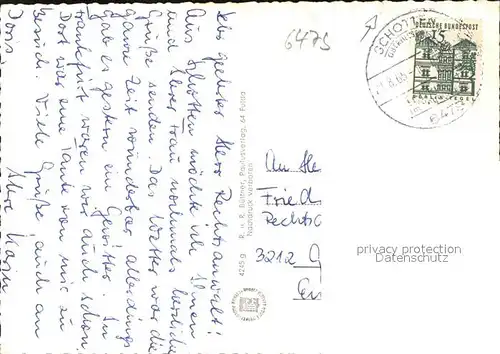 Sehr geehrter Herr Rechtsanwalt!
Aus Schotten möchte ich Ihnen
und Ihrer Frau nochmals herzliche
Grüße senden. Das Wetter war die
ganze Zeit wunderbar, allerdings
gab es gestern ein Gewitter. In
Frankfurt waren wir auch schon.
Dort war eine Tante von mir zu
Besuch. Viele Grüße auch an
Doris. Ihre
4245 G
R. u. R. Büttner, Postverlag, 64 Fulda
Nachdruck verboten
6479
SCHOTTEN
15
DEUTSCHE BUNDESPOST
BERLIN-TEGEL
6479
An He
Fried
Rechtsc
3212 G
privacy protection
Datenschutz